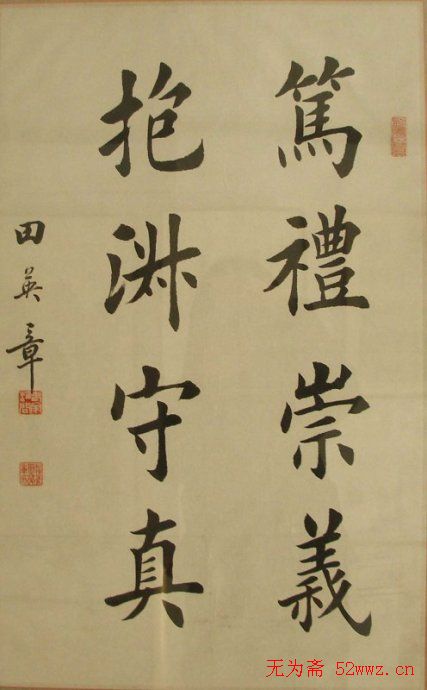 篤禮崇義
抱淑守真
田英章
无为斋 52wwz.cn